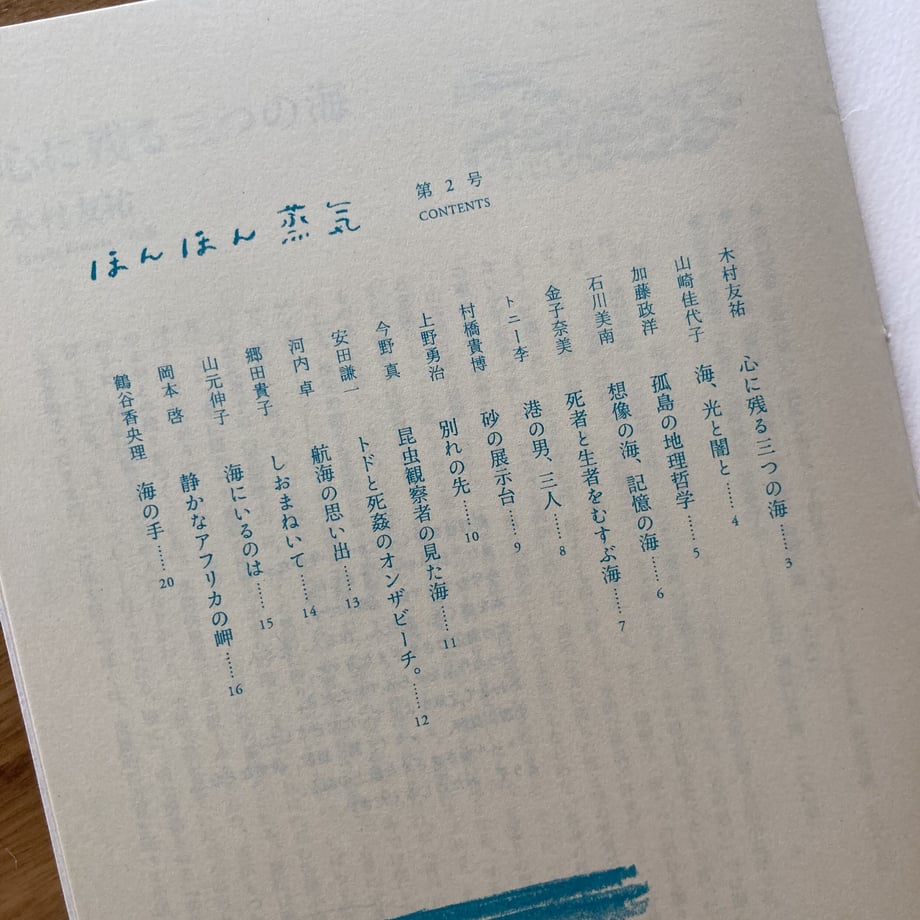 ほんほん蒸気
第2号
CONTENTS
木村友祐 心に残る三つの海……3
山崎佳代子 海、光と闇と……4
加藤政洋 孤島の地理哲学……5
石川美南 想像の海、記憶の海……6
金子奈美 死者と生者をむすぶ海……7
トニー李 港の男、三人……8
村橋貴博 砂の展示台……9
上野勇治 別れの先……10
今野 真 昆虫観察者の見た海……11
安田謙一 トドと死姦のオンザビーチ。……12
河内 卓 航海の思い出……13
郷田貴子 しおまねいて……14
山元伸子 海にいるのは……15
岡本 啓 静かなアフリカの岬……16
鶴谷香央理 海の手……20